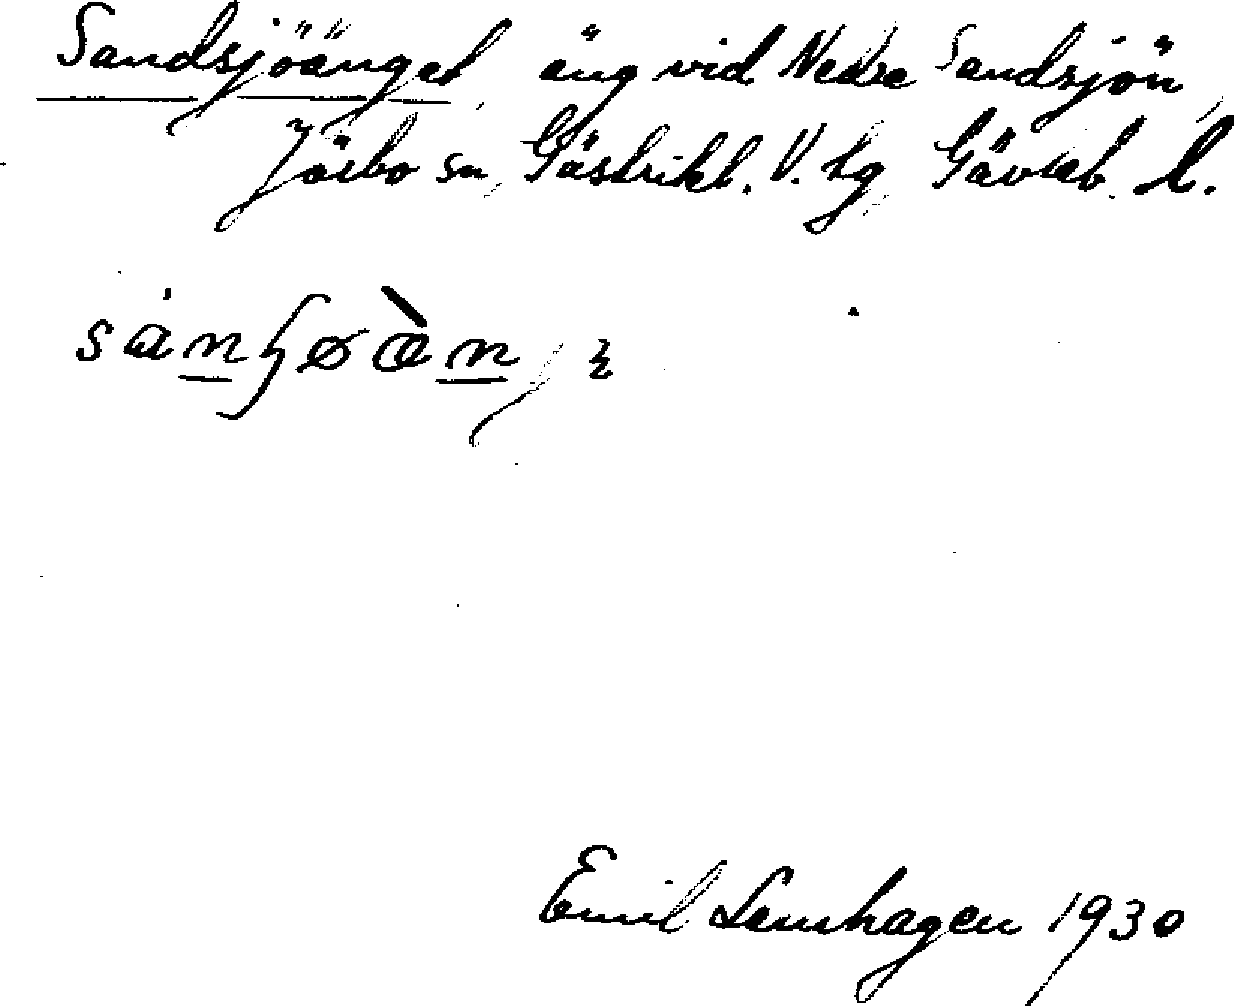 Sandsjöänget, äng vid Nedre Sandsjön,
Järbo sn, Gästrikl. V. tg, Gävleb. l.
Emil Lenhagen 1930